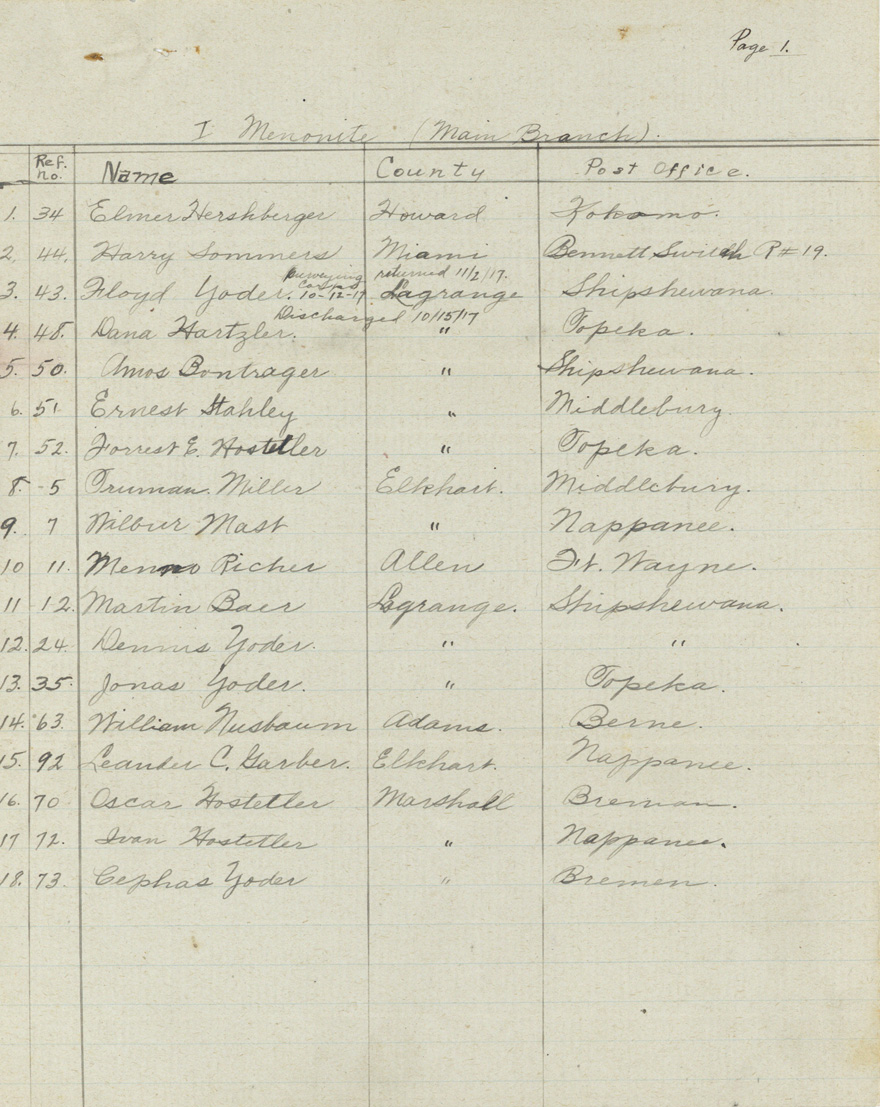 Page 1.
I Menonite (Main Branch).
Ref. no. Name County Post Office.
1. 34 Elmer Hershberger Howard Kokomo.
2. 44. Harry Sommers Miami Bennett Switch R#19.
surveying returned 11/2/17.
3. 43. Floyd Yoder. 10-12-17. Lagrange Shipshewana.
Discharged 10/15/17
4. 48. Dana Hartzler. " Topeka.
5. 50. Amos Bontrager " Shipshewana.
6. 51 Ernest Stahley " Middlebury.
7. 52. Forrest E. Hostetler " Topeka.
8. 5 Truman Miller Elkhart. Middlebury.
9. 7 Wilbur Mast " Nappanee.
10 11. Menno Richer Allen Ft. Wayne.
11 12. Martin Baer Lagrange. Shipshewana.
12. 24. Dennis Yoder. " "
13. 35. Jonas Yoder. " Topeka.
14. 63. William Nusbaum Adams. Berne.
15. 92 Leander C. Garber. Elkhart. Nappanee.
16. 70 Oscar Hostetler Marshall Breman.
17 72. Ivan Hostetler " Nappanee.
18. 73. Cephas Yoder " Bremen.